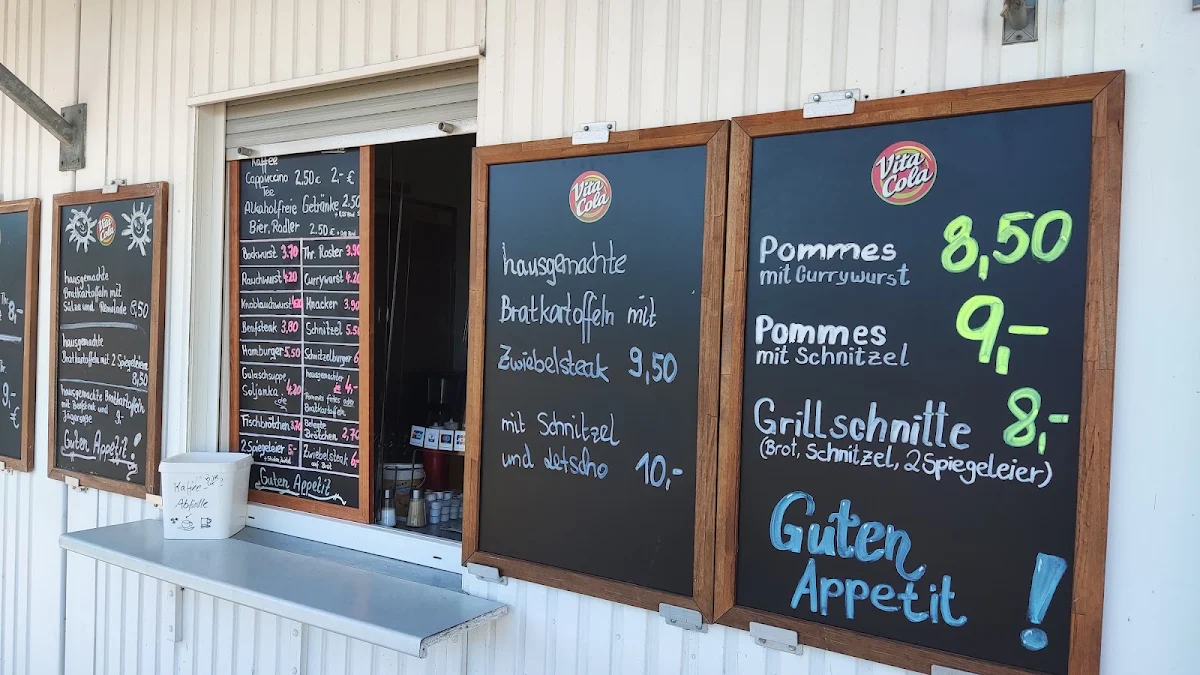 Thr.
8,-
9,-
€
Vita Cola
hausgemachte
Bratkartoffeln mit
Sülze und Remolade 8,50
hausgemachte
Bratkartoffeln mit 2 Spiegeleier
8,50
hausgemachte Bratkartoffeln
mit Beefsteak und
Jägersoße 9,-
Guten Appetit!
Kaffee
Cappuccino 2.50€ 2,-€
Tee
Alkoholfreie Getränke 2.50
Bier, Radler 2.50€
Bockwurst 3.70 Thr. Roster 3.90
Rauchwurst 4.20 Currywurst 4.20
Knoblauchwurst Knacker 3.90
Beefsteak 3.80 Schnitzel 5.50
Hamburger 5.50 Schnitzelburger 6
Gulaschsuppe
Soljanka 4.20
hausgemachter
4,-
Pommes frites oder
Bratkartoffeln
Fischbrötchen 3.70 Belegte
Brötchen 2,70
2 Spiegeleier 5,- Zwiebelsteak 6,-
auf Brot
Guten Appetit
Kaffee
Abfälle
Vita
Cola
hausgemachte
Bratkartoffeln mit
Zwiebelsteak 9,50
mit Schnitzel
und Letscho 10,-
Vita
Cola
Pommes 8,50
mit Currywurst
Pommes 9,-
mit Schnitzel
Grillschnitte 8,-
(Brot, Schnitzel, 2 Spiegeleier)
Guten
Appetit !